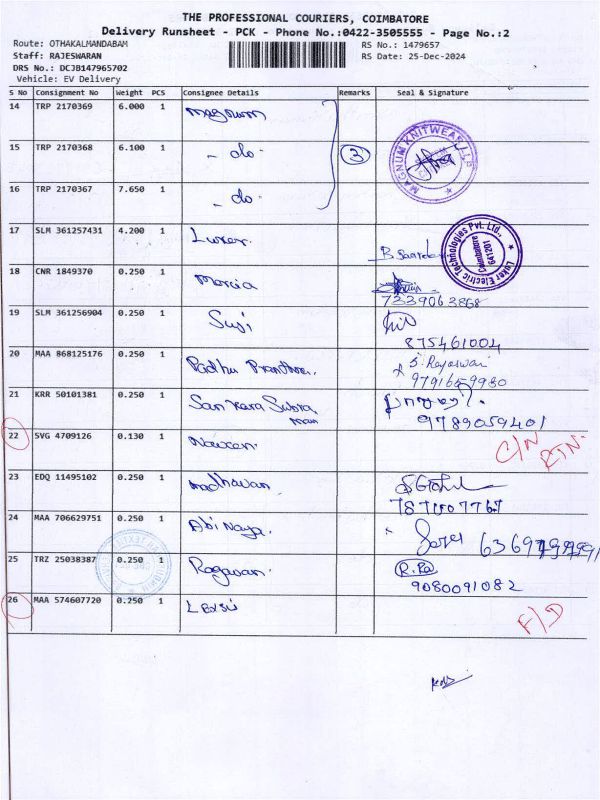 THE PROFESSIONAL COURIERS, COIMBATORE
Delivery Runsheet - PCK - Phone No.:0422-3505555 - Page No.:2
Route: OTHAKALMANDABAM
RS No.: 1479657
Staff: RAJESWARAN
RS Date: 25-Dec-2024
DRS No.: DCJB147965702
Vehicle: EV Delivery
S No Consignment No Weight PCS Consignee Details Remarks Seal & Signature
14 TRP 2170369 6.000 1 Magnum
15 TRP 2170368 6.100 1 - do - 3
MAGNUM KNITWEAR LLP
16 TRP 2170367 7.650 1 - do -
17 SLM 361257431 4.200 1 Luxer
Luker Electric Technologies Pvt. Ltd., Coimbatore 641201
18 CNR 1849370 0.250 1 Morcia
7339063868
19 SLM 361256904 0.250 1 Suji
875461004
20 MAA 868125176 0.250 1 Padhu
S. Rajeswari
9791659980
21 KRR 50101381 0.250 1 Sankara Subra
man
9789059401
22 SVG 4709126 0.130 1 Naveen
C/N RTN.
23 EDQ 11495102 0.250 1 Madhavan
7871507767
24 MAA 706629751 0.250 1 Abi Naya
25 TRZ 25038387 0.250 1 Ragavan
R.Ra
9080091082
26 MAA 574607720 0.250 1
F/D